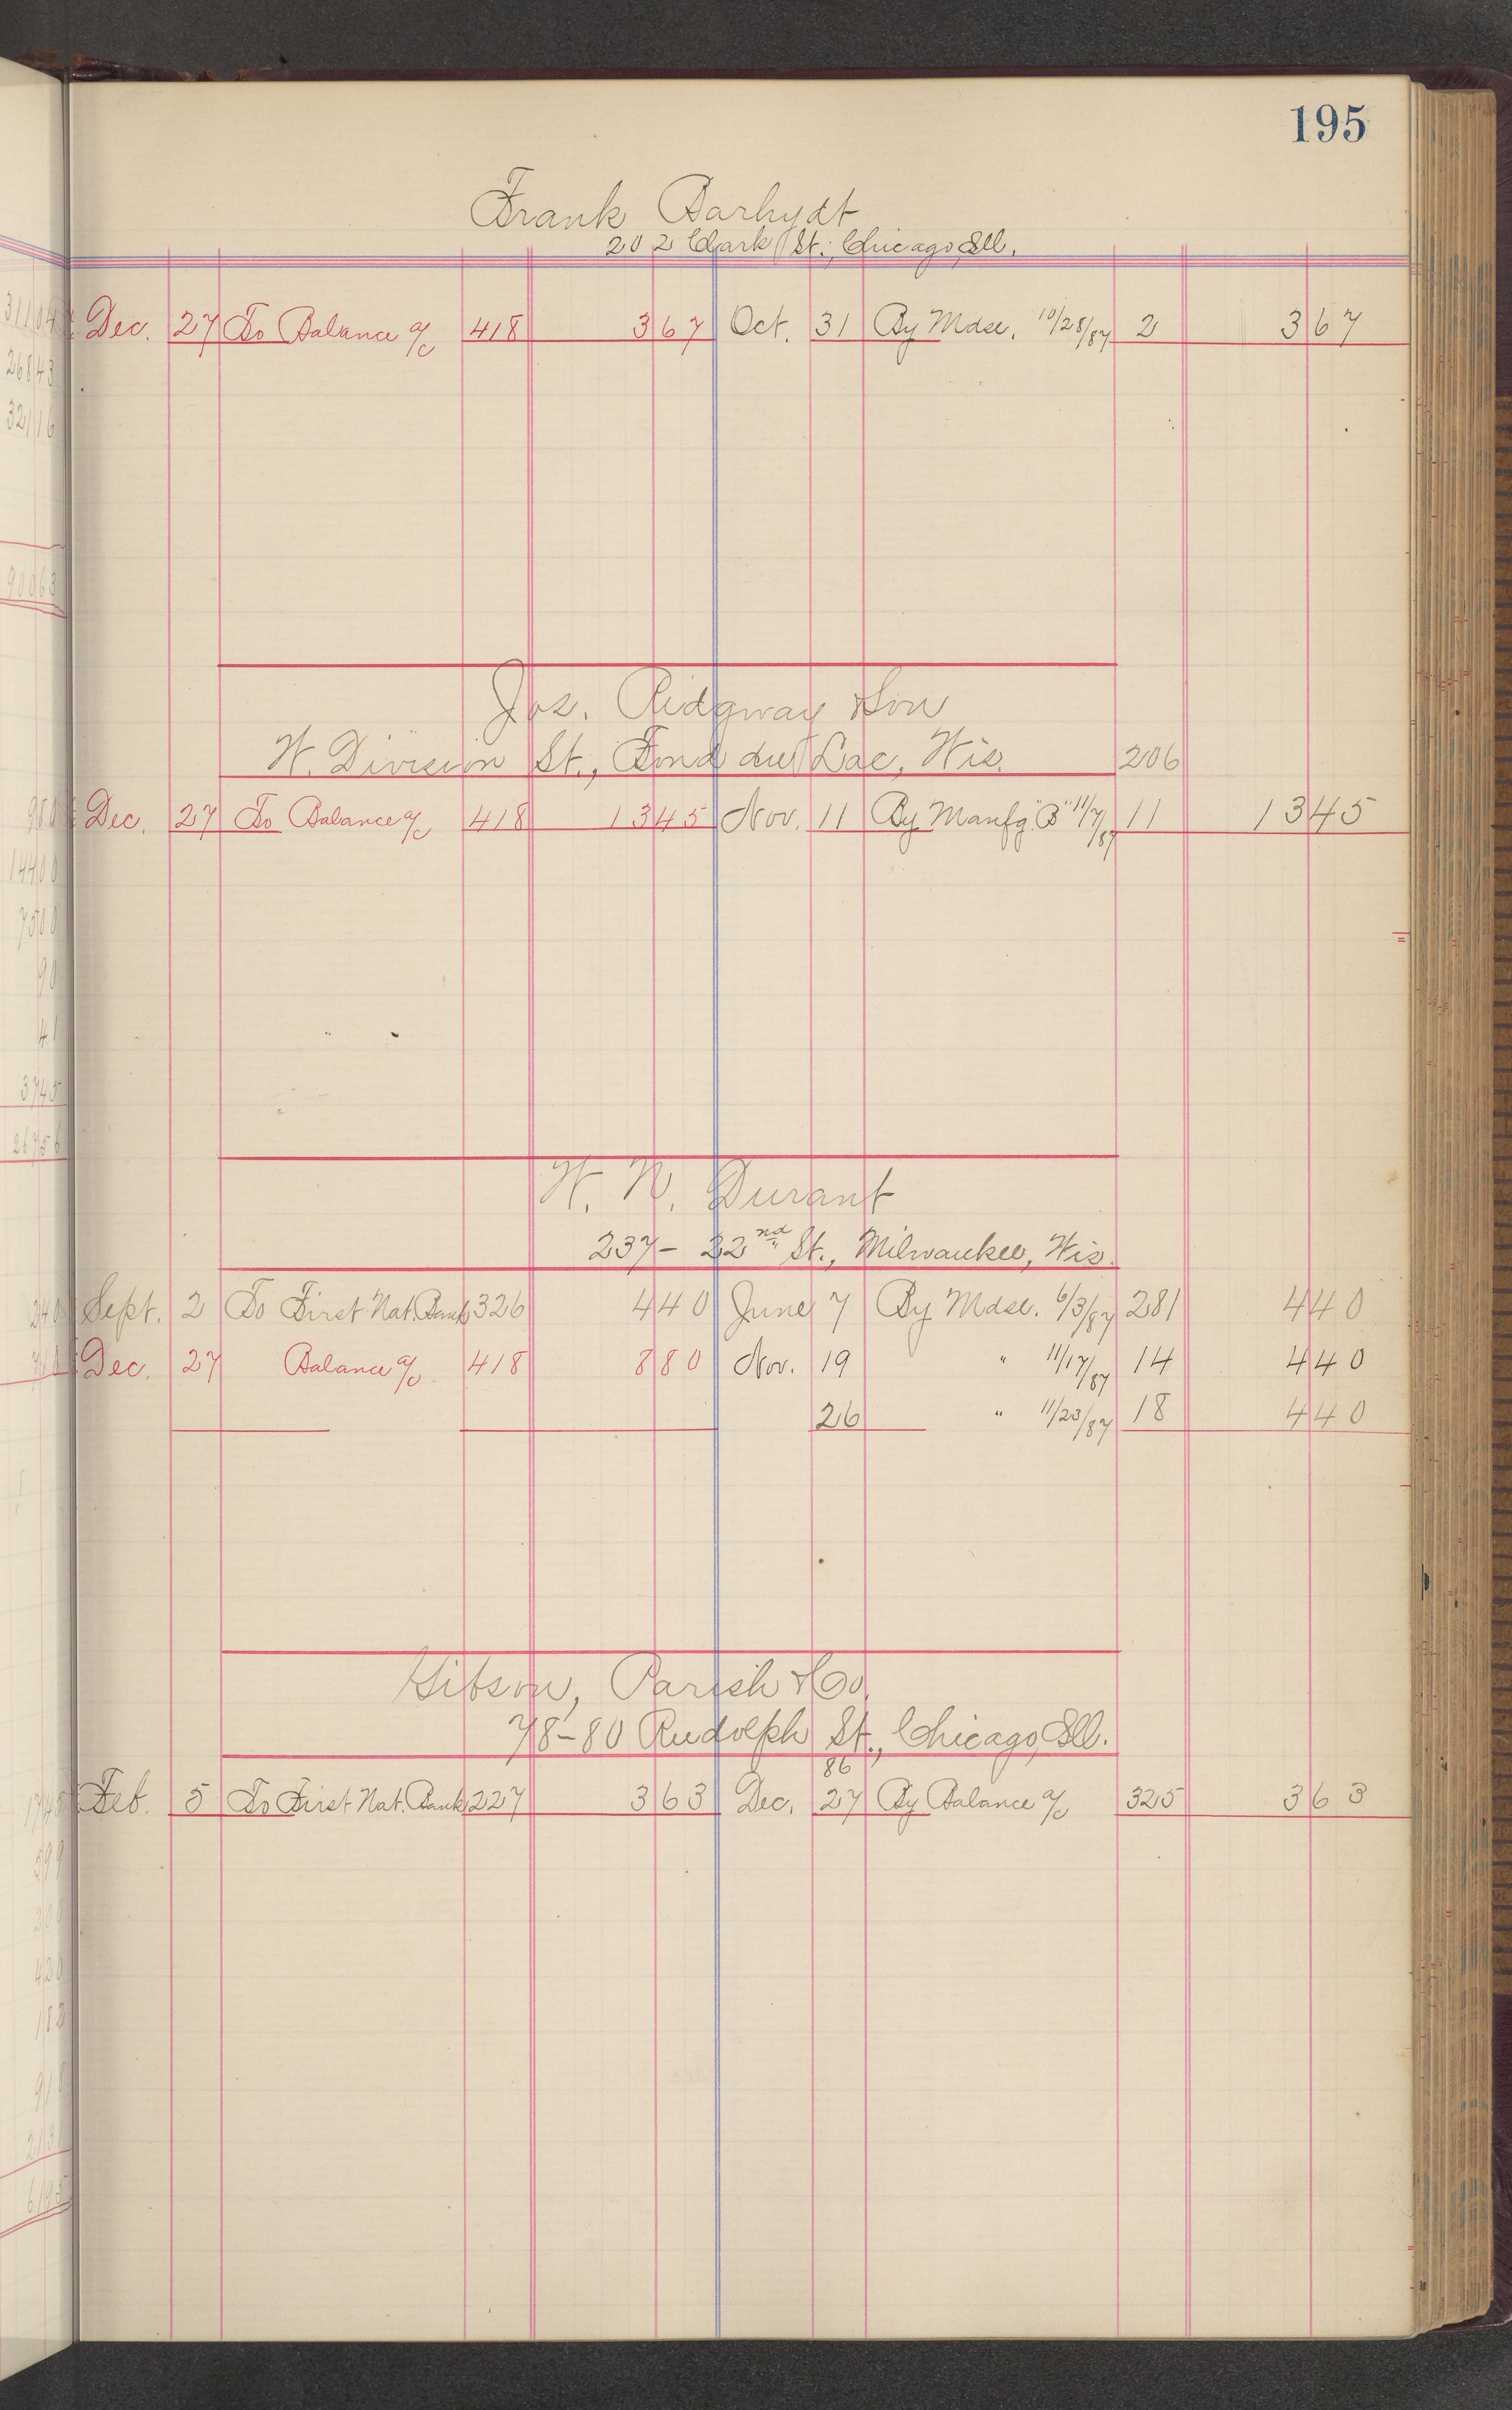 195
Frank Barhydt
202 Clark St., Chicago, Ill.
Dec. 27 To Balance a/c 418 3 67 Oct. 31 By Mdse. 10/28/87 2 3 67
Jos. Ridgway & Son
W. Division St., Fond du Lac, Wis. 206
Dec. 27 To Balance a/c 418 13 45 Nov. 11 By Manfg. "B" 11/7/87 11 13 45
W. N. Durant
237 - 32nd St., Milwaukee, Wis.
Sept. 2 To First Nat. Bank 326 4 40 June 7 By Mdse. 6/3/87 281 4 40
Dec. 27 Balance a/c 418 8 80 Nov. 19 " 11/17/87 14 4 40
26 " 11/23/87 18 4 40
Gibson, Parish & Co.
78-80 Rudolph St., Chicago, Ill.
86
Feb. 5 To First Nat. Bank 227 3 63 Dec. 27 By Balance a/c 325 3 63